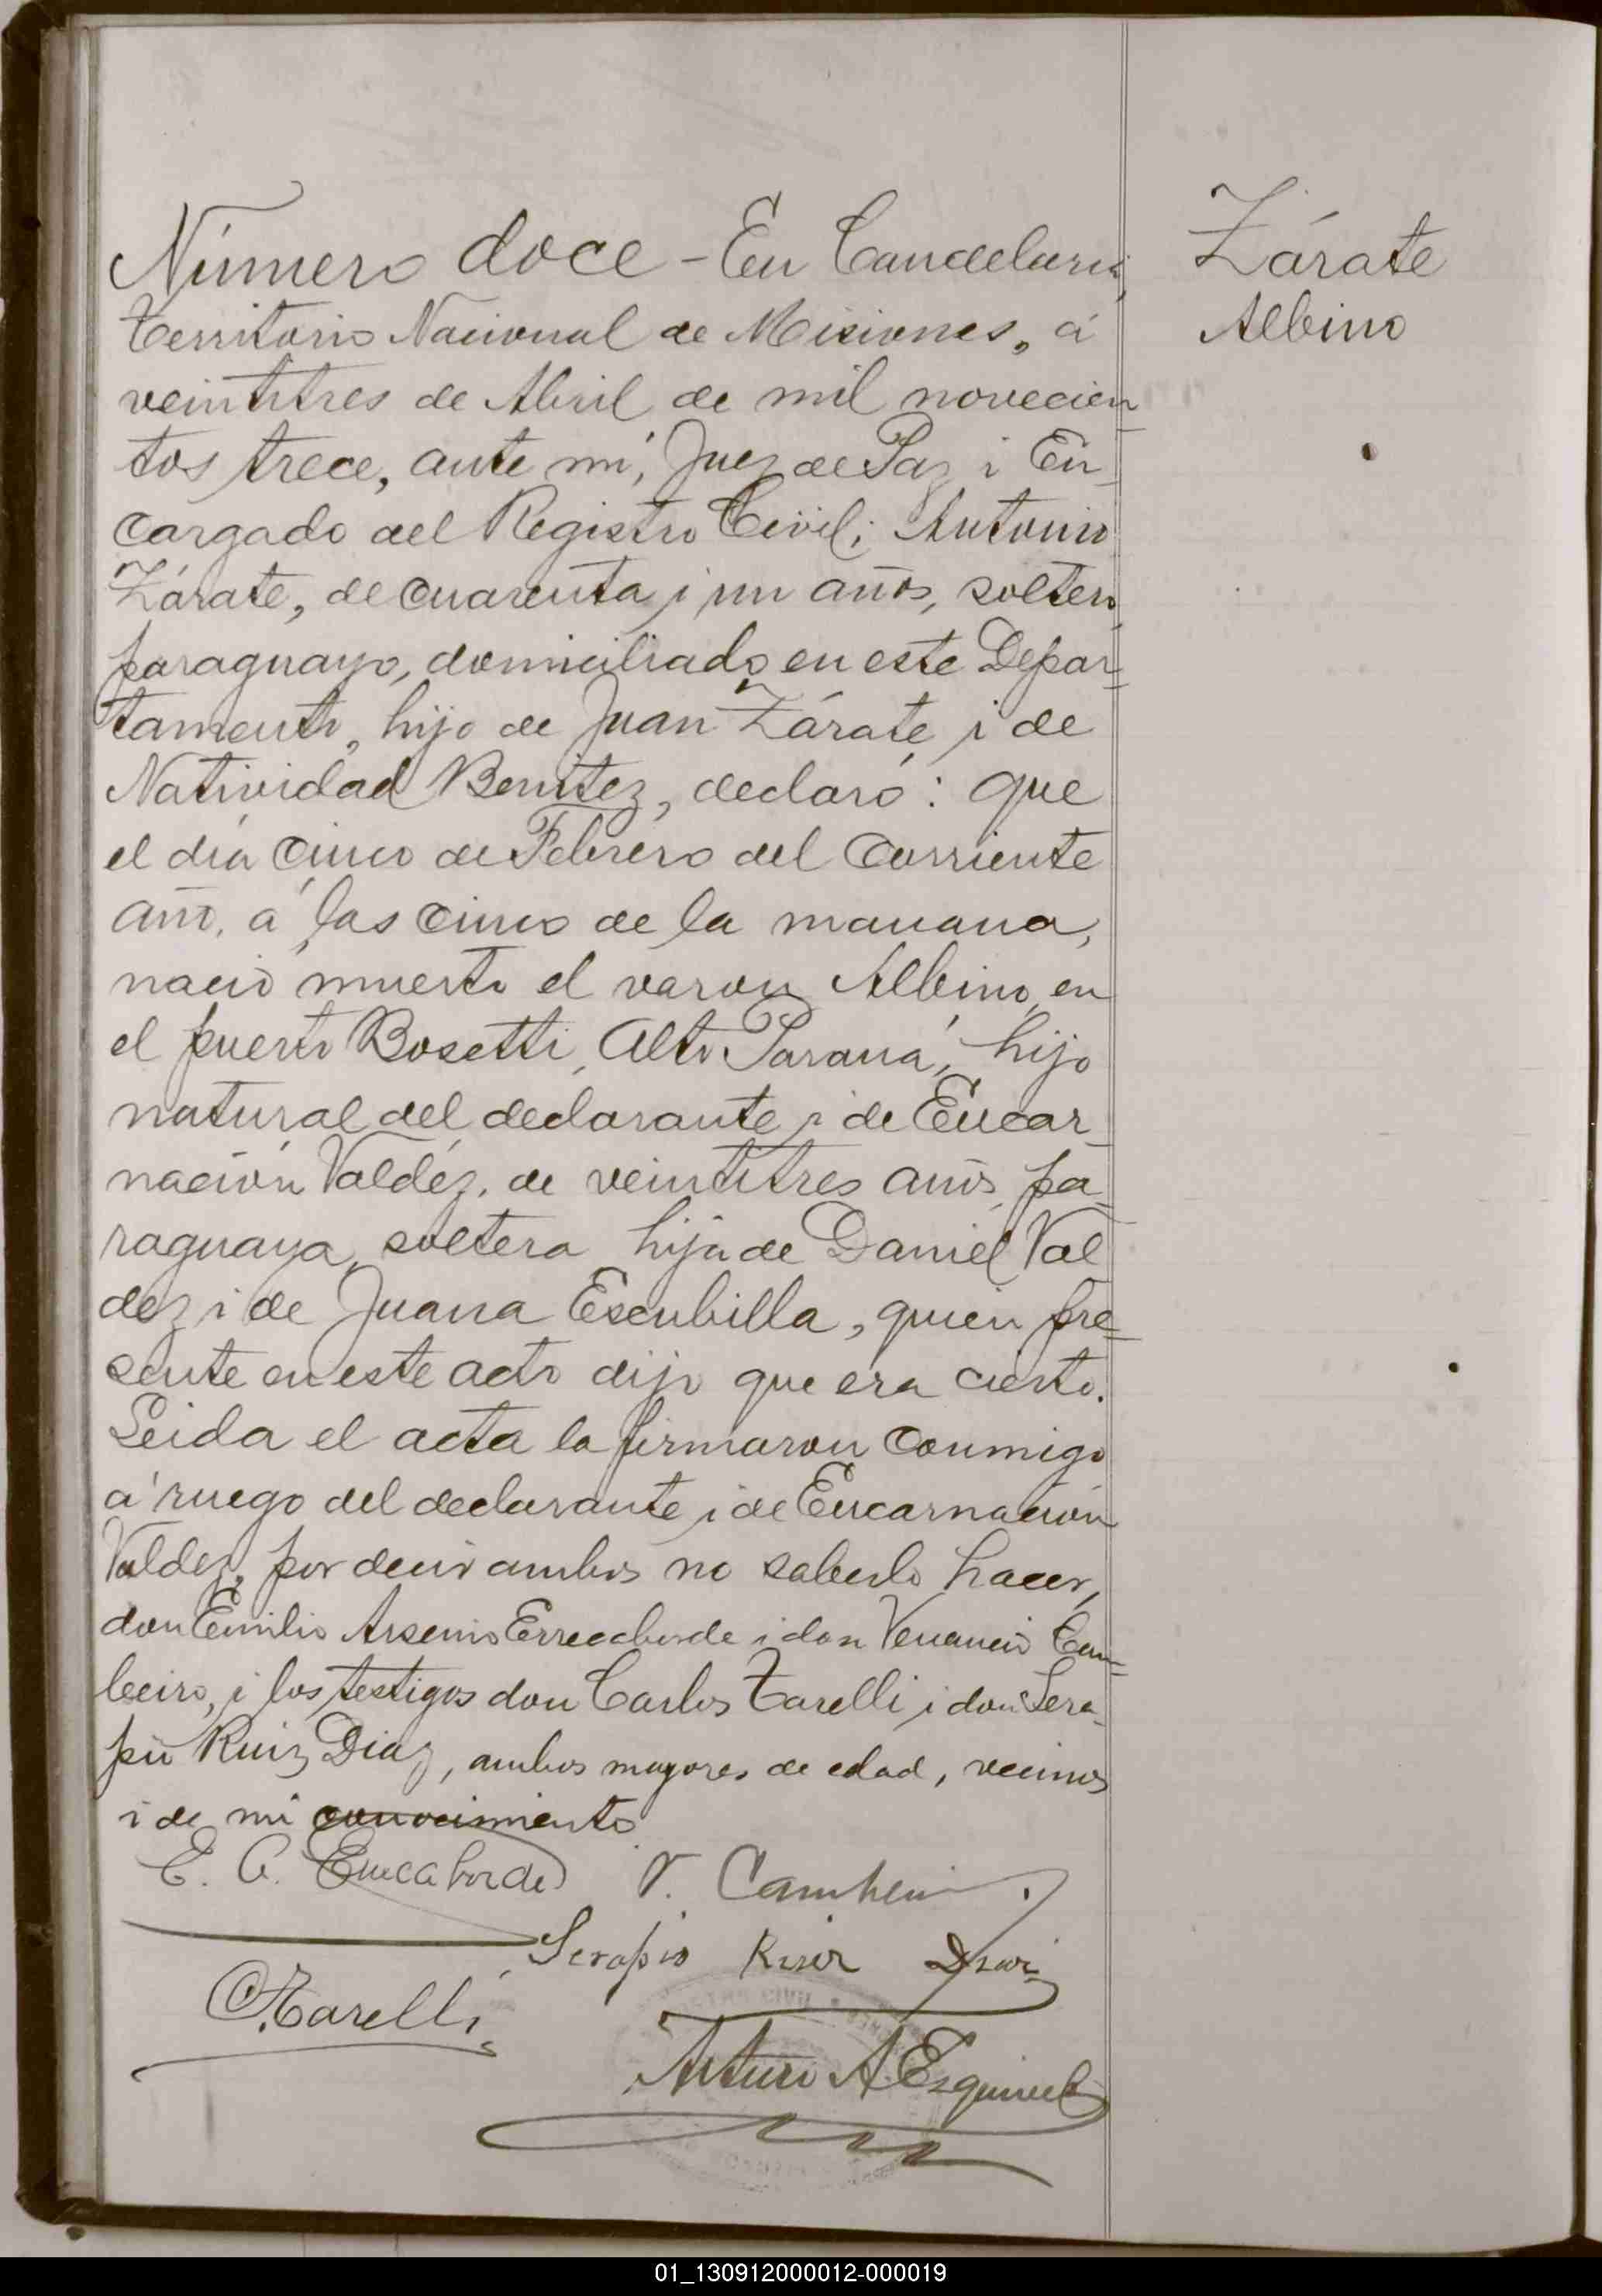 Número doce - En Candelaria,
Territorio Nacional de Misiones, á
veintitres de Abril de mil novecien-
tos trece, ante mí, Juez de Paz i En-
cargado del Registro Civil; Antonio
Zárate, de cuarenta i un años, soltero,
paraguayo, domiciliado en este Depar-
tamento, hijo de Juan Zárate i de
Natividad Benitez, declaró: que
el día cinco de Febrero del corriente
año, á las cinco de la mañana,
nació muerto el varon Albino, en
el puerto Bosetti, Alto Paraná, hijo
natural del declarante i de Encar-
nación Valdéz, de veintitres años, pa-
raguaya, soltera hija de Daniel Val
dez i de Juana Escubilla, quien pre-
sente en este acto dijo que era cierto.
Leida el acta la firmaron conmigo
á ruego del declarante i de Encarnación
Valdez, por decir ambos no saberlo hacer,
don Emilio Arsenio Errecaborde i don Venancio Cam-
beiro, i los testigos don Carlos Tarelli i don Sera-
pio Ruiz Diaz, ambos mayores de edad, vecinos
i de mi conocimiento
E. A. Errecaborde V. Cambeiro
Serapio Ruir Diai
C. Tarelli
Arturo A Esquivel
Zárate
Albino
01_130912000012-000019